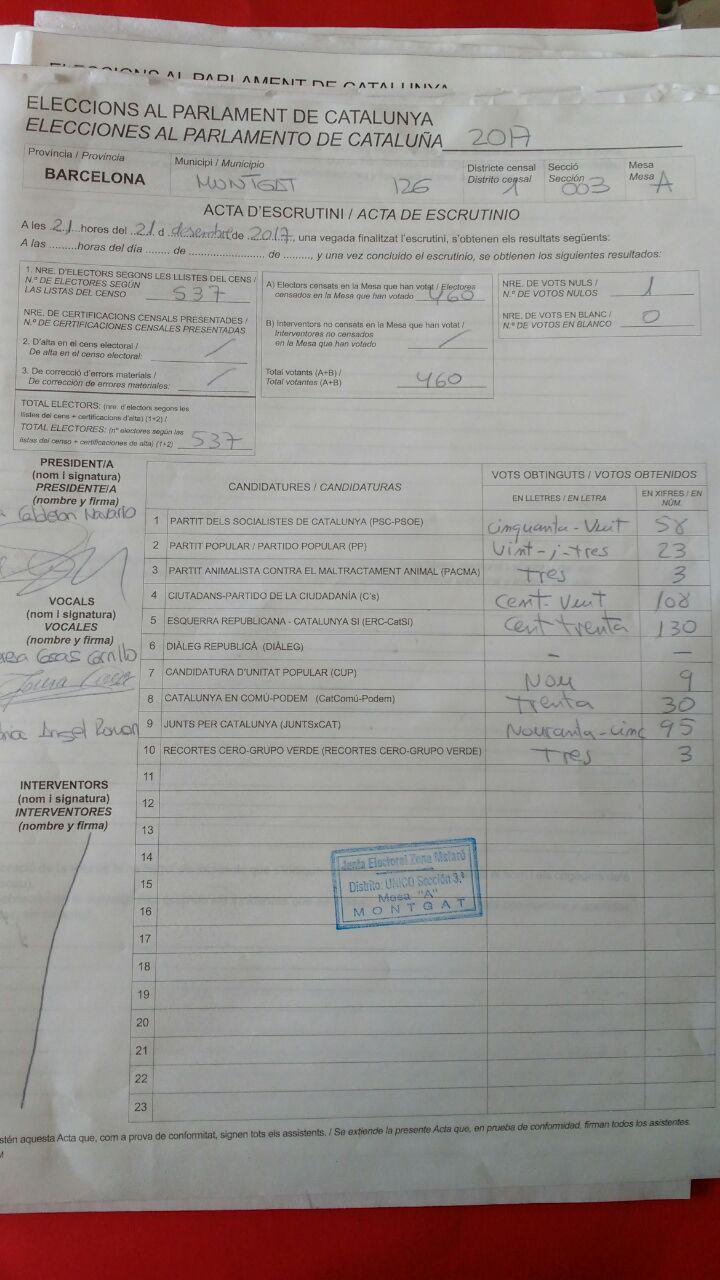 ELECCIONS AL PARLAMENT DE CATALUNYA
ELECCIONS AL PARLAMENT DE CATALUNYA
ELECCIONES AL PARLAMENTO DE CATALUÑA 2017
Provincia / Província
BARCELONA
Municipi / Municipio
MONTGAT 126
Districte censal
Distrito censal 1
Secció
Sección 003
Mesa
Mesa A
ACTA D'ESCRUTINI / ACTA DE ESCRUTINIO
A les 21 hores del 21 d desembre de 2017, una vegada finalitzat l'escrutini, s'obtenen els resultats següents:
A las .........horas del día ....... de ....................... de ........, y una vez concluido el escrutinio, se obtienen los siguientes resultados:
1. NRE. D'ELECTORS SEGONS LES LLISTES DEL CENS /
N.º DE ELECTORES SEGÚN
LAS LISTAS DEL CENSO 537
NRE. DE CERTIFICACIONS CENSALS PRESENTADES /
N.º DE CERTIFICACIONES CENSALES PRESENTADAS
2. D'alta en el cens electoral /
De alta en el censo electoral: /
3. De correcció d'errors materials /
De corrección de errores materiales: /
TOTAL ELECTORS: (nre. d'electors segons les
llistes del cens + certificacions d'alta) (1+2) /
TOTAL ELECTORES: (nº electores según las
listas del censo + certificaciones de alta) (1+2) 537
A) Electors censats en la Mesa que han votat / Electores
censados en la Mesa que han votado 460
B) Interventors no censats en la Mesa que han votat /
Interventores no censados
en la Mesa que han votado /
Total votants (A+B) /
Total votantes (A+B) 460
NRE. DE VOTS NULS /
N.º DE VOTOS NULOS 1
NRE. DE VOTS EN BLANC /
N.º DE VOTOS EN BLANCO 0
PRESIDENT/A
(nom i signatura)
PRESIDENTE/A
(nombre y firma)
Calderon Navarro
VOCALS
(nom i signatura)
VOCALES
(nombre y firma)
Casas Carrillo
Angel
INTERVENTORS
(nom i signatura)
INTERVENTORES
(nombre y firma)
CANDIDATURES / CANDIDATURAS
VOTS OBTINGUTS / VOTOS OBTENIDOS
EN LLETRES / EN LETRA
EN XIFRES / EN NÚM.
1 PARTIT DELS SOCIALISTES DE CATALUNYA (PSC-PSOE) cinquanta-vuit 58
2 PARTIT POPULAR / PARTIDO POPULAR (PP) vint-i-tres 23
3 PARTIT ANIMALISTA CONTRA EL MALTRACTAMENT ANIMAL (PACMA) Tres 3
4 CIUTADANS-PARTIDO DE LA CIUDADANÍA (C's) Cent-vuit 108
5 ESQUERRA REPUBLICANA - CATALUNYA SI (ERC-CatSí) Cent trenta 130
6 DIÀLEG REPUBLICÀ (DIÀLEG) – –
7 CANDIDATURA D'UNITAT POPULAR (CUP) Nou 9
8 CATALUNYA EN COMÚ-PODEM (CatComú-Podem) Trenta 30
9 JUNTS PER CATALUNYA (JUNTSxCAT) Nouranta-cinc 95
10 RECORTES CERO-GRUPO VERDE (RECORTES CERO-GRUPO VERDE) Tres 3
11
12
13
14
15
16
17
18
19
20
21
22
23
Junta Electoral Zona Mataró
Distrito: ÚNICO Sección 3.ª
Mesa "A"
MONTGAT
stén aquesta Acta que, com a prova de conformitat, signen tots els assistents. / Se extiende la presente Acta que, en prueba de conformidad, firman todos los asistentes.